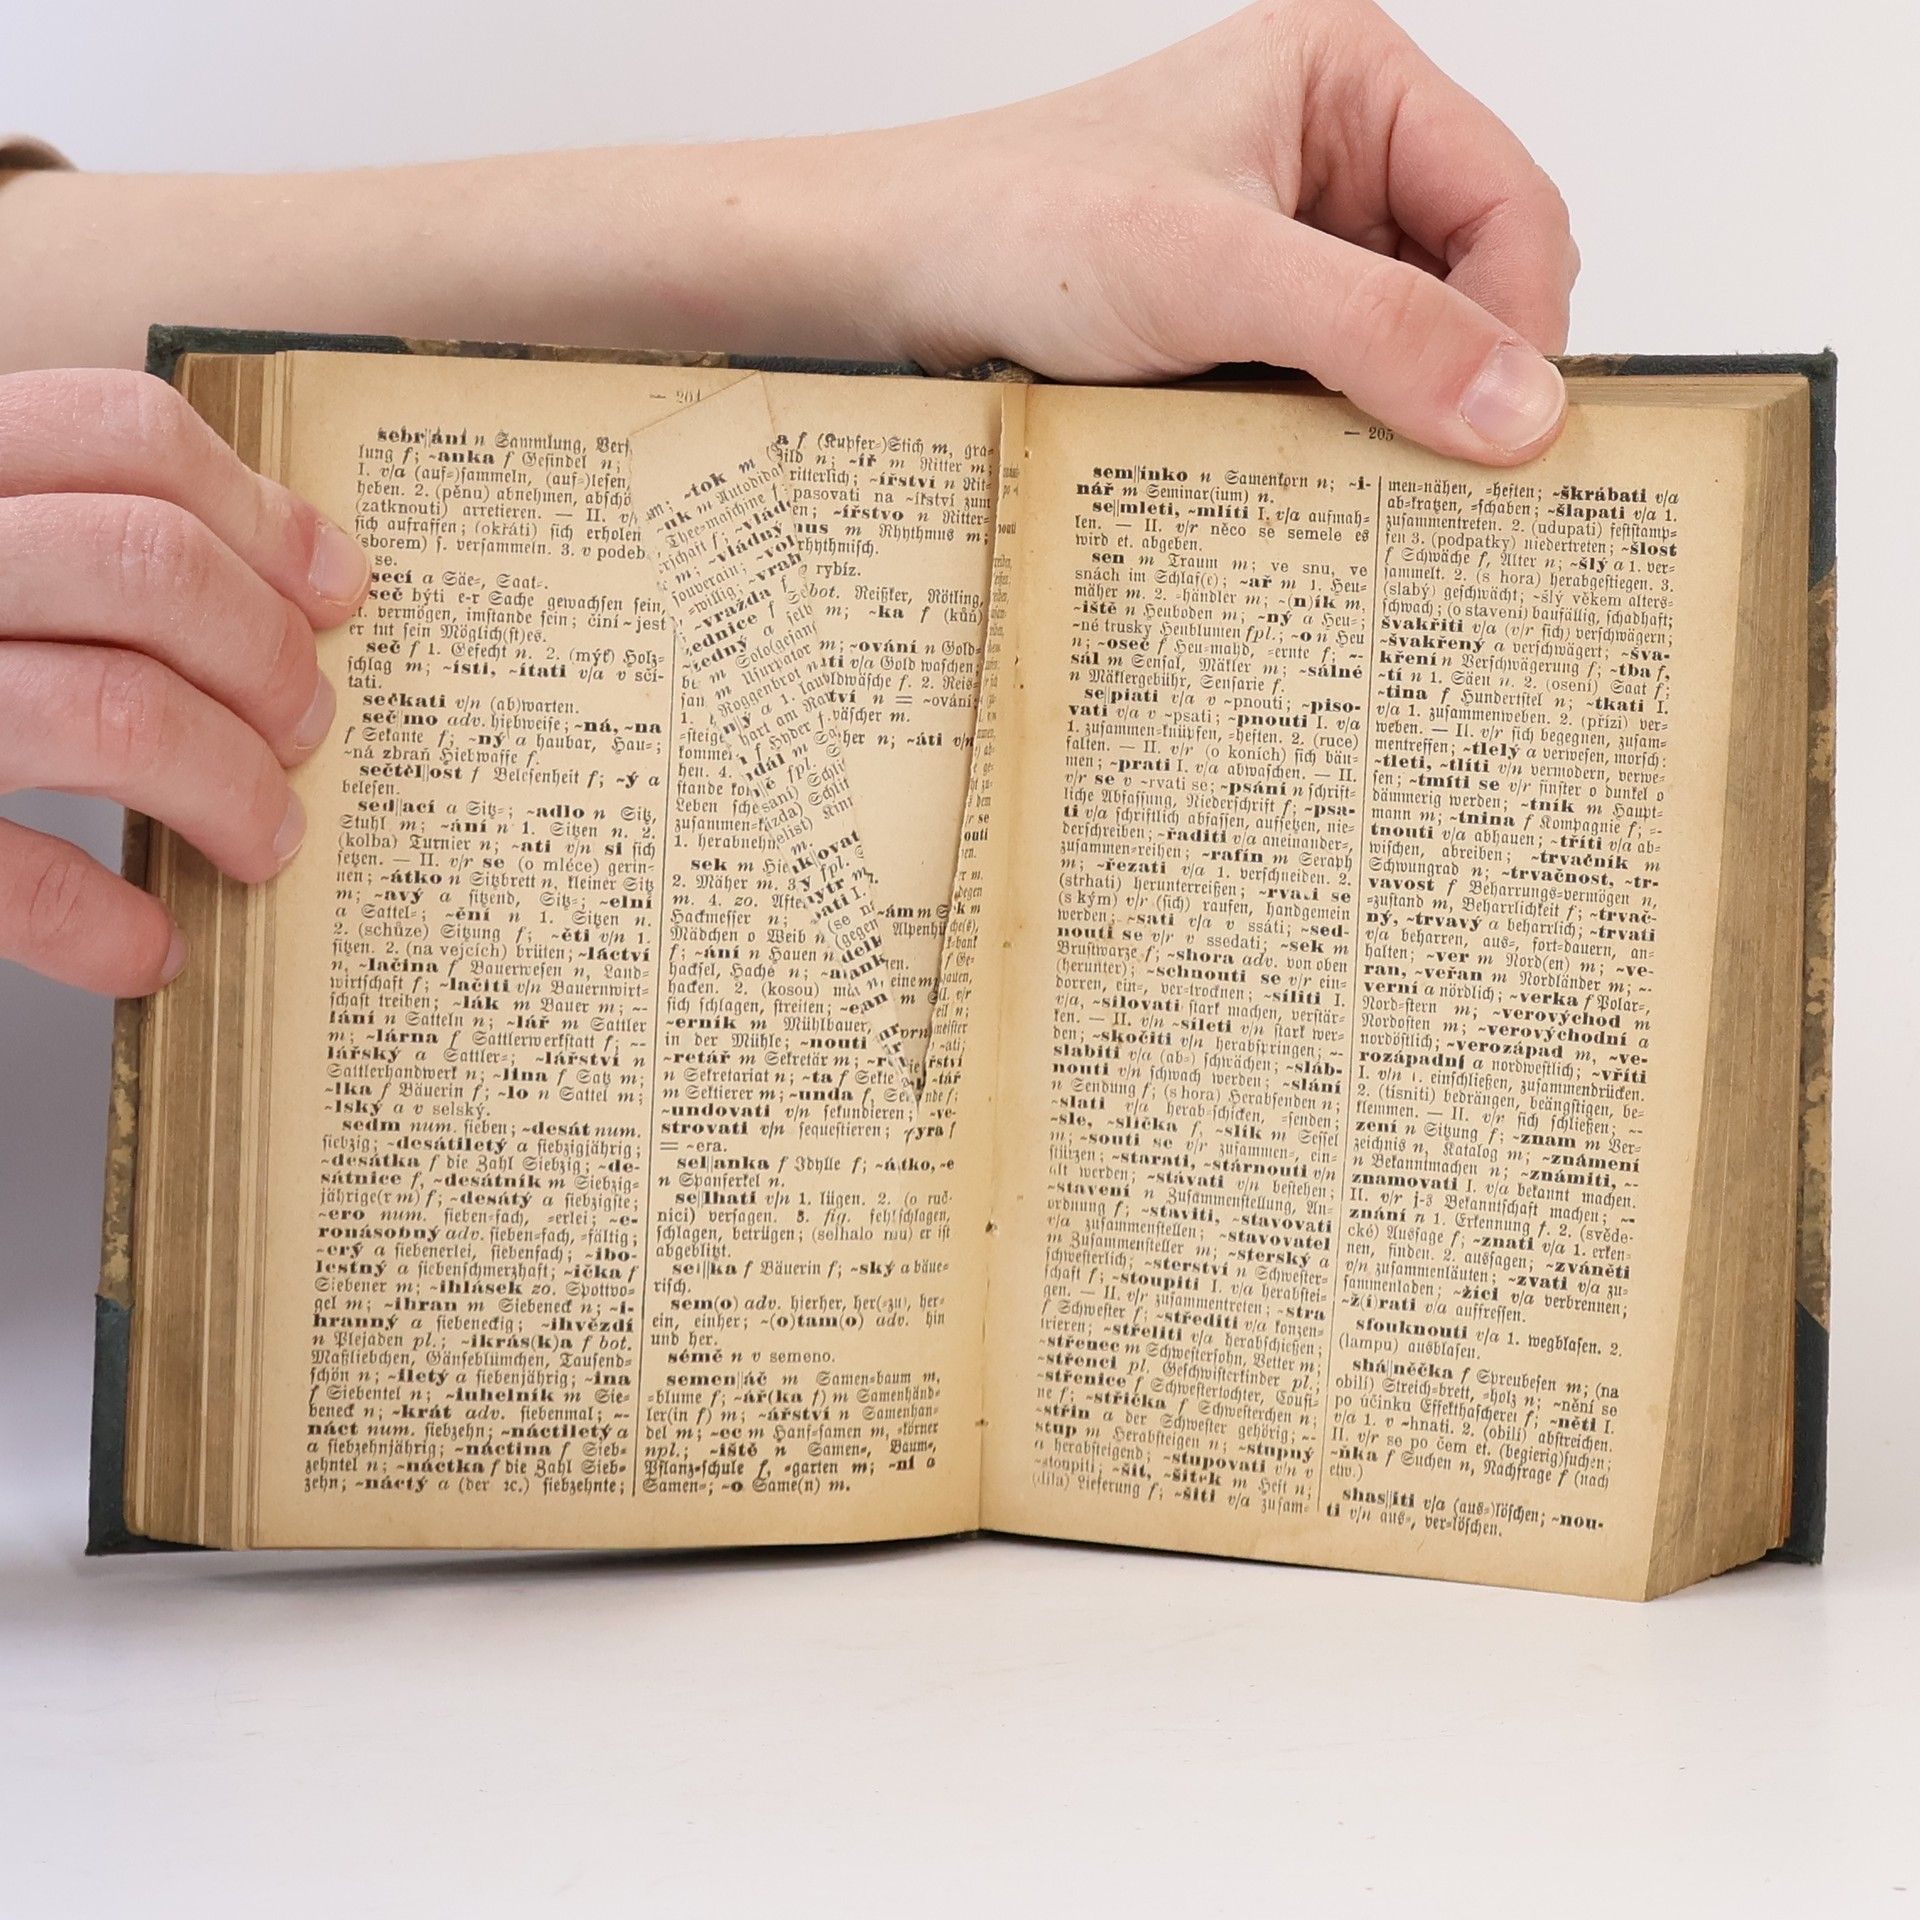 — 201
sebr||ání n Sammlung, Ver
lung f; ~anka f Gesindel n;
I. v/a (auf=)sammeln, (auf=)lesen,
heben. 2. (pěnu) abnehmen, abschö
(zatknouti) arretieren. — II. v/
sich aufraffen; (okřáti) sich erholen
(sborem) s. versammeln. 3. v podeb
se.
secí a Säe=, Saat=.
seč býti e-r Sache gewachsen sein,
vermögen, imstande sein; činí ~ jest
er tut sein Möglich(st)es.
seč f 1. Gefecht n. 2. (mýť) Holz=
schlag m; ~ísti, ~ítati v/a v sčí-
tati.
sečkati v/n (ab)warten.
seč||mo adv. hiebweise; ~ná, ~na
f Sekante f; ~ný a haubar, Hau=;
~ná zbraň Hiebwaffe f.
sečtěl||ost f Belesenheit f; ~ý a
belesen.
sed||ací a Sitz=; ~adlo n Sitz,
Stuhl m; ~ání n 1. Sitzen n. 2.
(kolba) Turnier n; ~ati v/n si sich
setzen. — II. v/r se (o mléce) gerin=
nen; ~átko n Sitzbrett n, kleiner Sitz
m; ~avý a sitzend, Sitz=; ~elní
a Sattel=; ~ění n 1. Sitzen n.
2. (schůze) Sitzung f; ~ěti v/n 1.
sitzen. 2. (na vejcích) brüten; ~láctví
n, ~lačina f Bauerwesen n, Land=
wirtschaft f; ~lačiti v/n Bauernwirt=
schaft treiben; ~lák m Bauer m; ~-
lání n Satteln n; ~lář m Sattler
m; ~lárna f Sattlerwerkstatt f; ~-
lářský a Sattler=; ~lářství n
Sattlerhandwerk n; ~lina f Satz m;
~lka f Bäuerin f; ~lo n Sattel m;
~lský a v selský.
sedm num. sieben; ~desát num.
siebzig; ~desátiletý a siebzigjährig;
~desátka f die Zahl Siebzig; ~de-
sátnice f, ~desátník m Siebzig=
jährige(r m) f; ~desátý a siebzigste;
~ero num. sieben=fach, =erlei; ~e-
ronásobný adv. sieben=fach, =fältig;
~erý a siebenerlei, siebenfach; ~ibo-
lestný a siebenschmerzhaft; ~ička f
Siebener m; ~ihlásek zo. Spottvo=
gel m; ~ihran m Siebeneck n; ~i-
hranný a siebeneckig; ~ihvězdí
n Plejaden pl.; ~ikrás(k)a f bot.
Maßliebchen, Gänseblümchen, Tausend=
schön n; ~iletý a siebenjährig; ~ina
f Siebentel n; ~iuhelník m Sie=
beneck n; ~krát adv. siebenmal; ~-
náct num. siebzehn; ~náctiletý a
a siebzehnjährig; ~náctina f Sieb=
zehntel n; ~náctka f die Zahl Sieb=
zehn; ~náctý a (der 2c.) siebzehnte;
a f (Kupfer=)Stich m, gra=
Bild n; ~íř m Ritter m;
ritterlich; ~ířství n Rit=
pasovati na ~ířství zum
en; ~ířstvo n Ritter=
mus m Rhythmus m;
rhythmisch.
rybíz.
bot. Reißker, Rötling,
m; ~ka f (kůň)
m; ~ování n Gold=
ti v/a Gold waschen;
ldwäsche f. 2. Reis=
tví n = ~ování
wäscher m.
her n; ~áti v/n
1.
=steige
komme
hen. 4.
stande ko
Leben sche
zusammen=
1. herabneh
sek m Hie
2. Mäher m. 3
m. 4. zo. Afte
Hackmesser n;
Mädchen o Weib n
f; ~ání n Hauen n
hacksel, Haché n; ~a
hacken. 2. (kosou) mä
sich schlagen, streiten;
~erník m Mühlbauer,
in der Mühle; ~nouti
~retář m Sekretär m; ~r
n Sekretariat n; ~ta f Sekte
m Sektierer m; ~unda f, Se
~undovati v/n sekundieren; ~ve-
strovati v/n sequestieren; ~yra f
= ~era.
sel||anka f Idylle f; ~átko, ~e
n Spanferkel n.
se||lhati v/n 1. lügen. 2. (o ruč-
nici) versagen. 3. fig. fehlschlagen,
schlagen, betrügen; (selhalo mu) er ist
abgeblitzt.
sel||ka f Bäuerin f; ~ský a bäue=
risch.
sem(o) adv. hierher, her(=zu), her=
ein, einher; ~(o)tam(o) adv. hin
und her.
sémě n v semeno.
semen||áč m Samen=baum m,
=blume f; ~ář(ka f) m Samenhänd=
ler(in f) m; ~ářství n Samenhan=
del m; ~ec m Hanf=samen m, =körner
npl.; ~iště n Samen=, Baum=,
Pflanz=schule f, =garten m; ~ní a
Samen=; ~o Same(n) m.
— 205
sem||ínko n Samenkorn n; ~i-
nář m Seminar(ium) n.
se||mleti, ~mlíti I. v/a aufmah=
len. — II. v/r něco se semele es
wird et. abgeben.
sen m Traum m; ve snu, ve
snách im Schlaf(e); ~ař m 1. Heu=
mäher m. 2. =händler m; ~(n)ík m,
~iště n Heuboden m; ~ný a Heu=;
~né trusky Heublumen fpl.; ~o n Heu
n; ~oseč f Heu=mahd, =ernte f; ~-
sál m Sensal, Mäkler m; ~sálné
n Mäklergebühr, Sensarie f.
se||piati v/a v ~pnouti; ~piso-
vati v/a v ~psati; ~pnouti I. v/a
1. zusammen=knüpfen, =heften. 2. (ruce)
falten. — II. v/r (o koních) sich bäu=
men; ~prati I. v/a abwaschen. — II.
v/r se v ~rvati se; ~psání n schrift=
liche Abfassung, Niederschrift f; ~psa-
ti v/a schriftlich abfassen, aufsetzen, nie=
derschreiben; ~řaditi v/a aneinander=,
zusammen=reihen; ~rafín m Seraph
m; ~řezati v/a 1. verschneiden. 2.
(strhati) herunterreißen; ~rvati se
(s kým) v/r (sich) raufen, handgemein
werden; ~sati v/a v ssáti; ~sed-
nouti se v/r v ssedati; ~sek m
Brustwarze f; ~shora adv. von oben
(herunter); ~schnouti se v/r ein=
dorren, ein=, ver=trocknen; ~síliti I.
v/a, ~silovati stark machen, verstär=
ken. — II. v/n ~síleti v/n stark wer=
den; ~skočiti v/n herabspringen; ~-
slabiti v/a (ab=) schwächen; ~sláb-
nouti v/n schwach werden; ~slání
n Sendung f; (s hora) Herabsenden n;
~slati v/a herab=schicken, =senden;
~sle, ~slička f, ~slík m Sessel
m; ~souti se v/r zusammen=, ein=
stürzen; ~starati, ~stárnouti v/n
alt werden; ~stávati v/n bestehen;
~stavení n Zusammenstellung, An=
ordnung f; ~staviti, ~stavovati
v/a zusammenstellen; ~stavovatel
m Zusammensteller m; ~sterský a
schwesterlich; ~sterství n Schwester=
schaft f; ~stoupiti I. v/a herabstei=
gen. — II. v/r zusammentreten; ~stra
f Schwester f; ~střediti v/a konzen=
trieren; ~střeliti v/a herabschießen;
~střenec m Schwestersohn, Vetter m;
~střenci pl. Geschwisterkinder pl.;
~střenice f Schwestertochter, Cousi=
ne f; ~střička f Schwesterchen n;
~střin a der Schwester gehörig; ~-
stup m Herabsteigen n; ~stupný
a herabsteigend; ~stupovati v/n v
~stoupiti; ~šit, ~šitek m Heft n;
(díla) Lieferung f; ~šíti v/a zusam=
men=nähen, =heften; ~škrábati v/a
ab=kratzen, =schaben; ~šlapati v/a 1.
zusammentreten. 2. (udupati) feststamp=
fen 3. (podpatky) niedertreten; ~šlost
f Schwäche f, Alter n; ~šlý a 1. ver=
sammelt. 2. (s hora) herabgestiegen. 3.
(slabý) geschwächt; ~šlý věkem alters=
schwach; (o stavení) baufällig, schadhaft;
švakřiti v/a (v/r sich) verschwägern;
~švakřený a verschwägert; ~šva-
kření n Verschwägerung f; ~tba f,
~tí n 1. Säen n. 2. (osení) Saat f;
~tina f Hundertstel n; ~tkati I.
v/a 1. zusammenweben. 2. (přízi) ver=
weben. — II. v/r sich begegnen, zusam=
mentreffen; ~tlelý a verwesen, morsch;
~tleti, ~tlíti v/n vermodern, verwe=
sen; ~tmíti se v/r finster o dunkel o
dämmerig werden; ~tník m Haupt=
mann m; ~tnina f Kompagnie f; ~-
tnouti v/a abhauen; ~tříti v/a ab=
wischen, abreiben; ~trvačník m
Schwungrad n; ~trvačnost, ~tr-
vavost f Beharrungs=vermögen n,
=zustand m, Beharrlichkeit f; ~trvač-
ný, ~trvavý a beharrlich; ~trvati
v/a beharren, aus=, fort=dauern, an=
halten; ~ver m Nord(en) m; ~ve-
ran, ~veřan m Nordländer m; ~-
verní a nördlich; ~verka f Polar=,
Nord=stern m; ~verovýchod m
Nordosten m; ~verovýchodní a
nordöstlich; ~verozápad m, ~ve-
rozápadní a nordwestlich; ~vříti
I. v/n 1. einschließen, zusammendrücken.
2. (tísniti) bedrängen, beängstigen, be=
klemmen. — II. v/r sich schließen; ~-
zení n Sitzung f; ~znam m Ver=
zeichnis n, Katalog m; ~známení
n Bekanntmachen n; ~známiti, ~-
znamovati I. v/a bekannt machen.
II. v/r j-s Bekanntschaft machen; ~-
znání n 1. Erkennung f. 2. (svěde-
cké) Aussage f; ~znati v/a 1. erken=
nen, finden. 2. aussagen; ~zváněti
v/n zusammenläuten; ~zvati v/a zu=
sammenladen; ~žíci v/a verbrennen;
~ž(í)rati v/a auffressen.
sfouknouti v/a 1. wegblasen. 2.
(lampu) ausblasen.
shá||něčka f Spreubesen m; (na
obilí) Streich=brett, =holz n; ~nění se
po účinku Effekthascherei f; ~něti I.
v/a 1. v ~hnati. 2. (obilí) abstreichen.
II. v/r se po čem et. (begierig)suchen;
~ňka f Suchen n, Nachfrage f (nach
etw.)
shas||iti v/a (aus=)löschen; ~nou-
ti v/n aus=, ver=löschen.